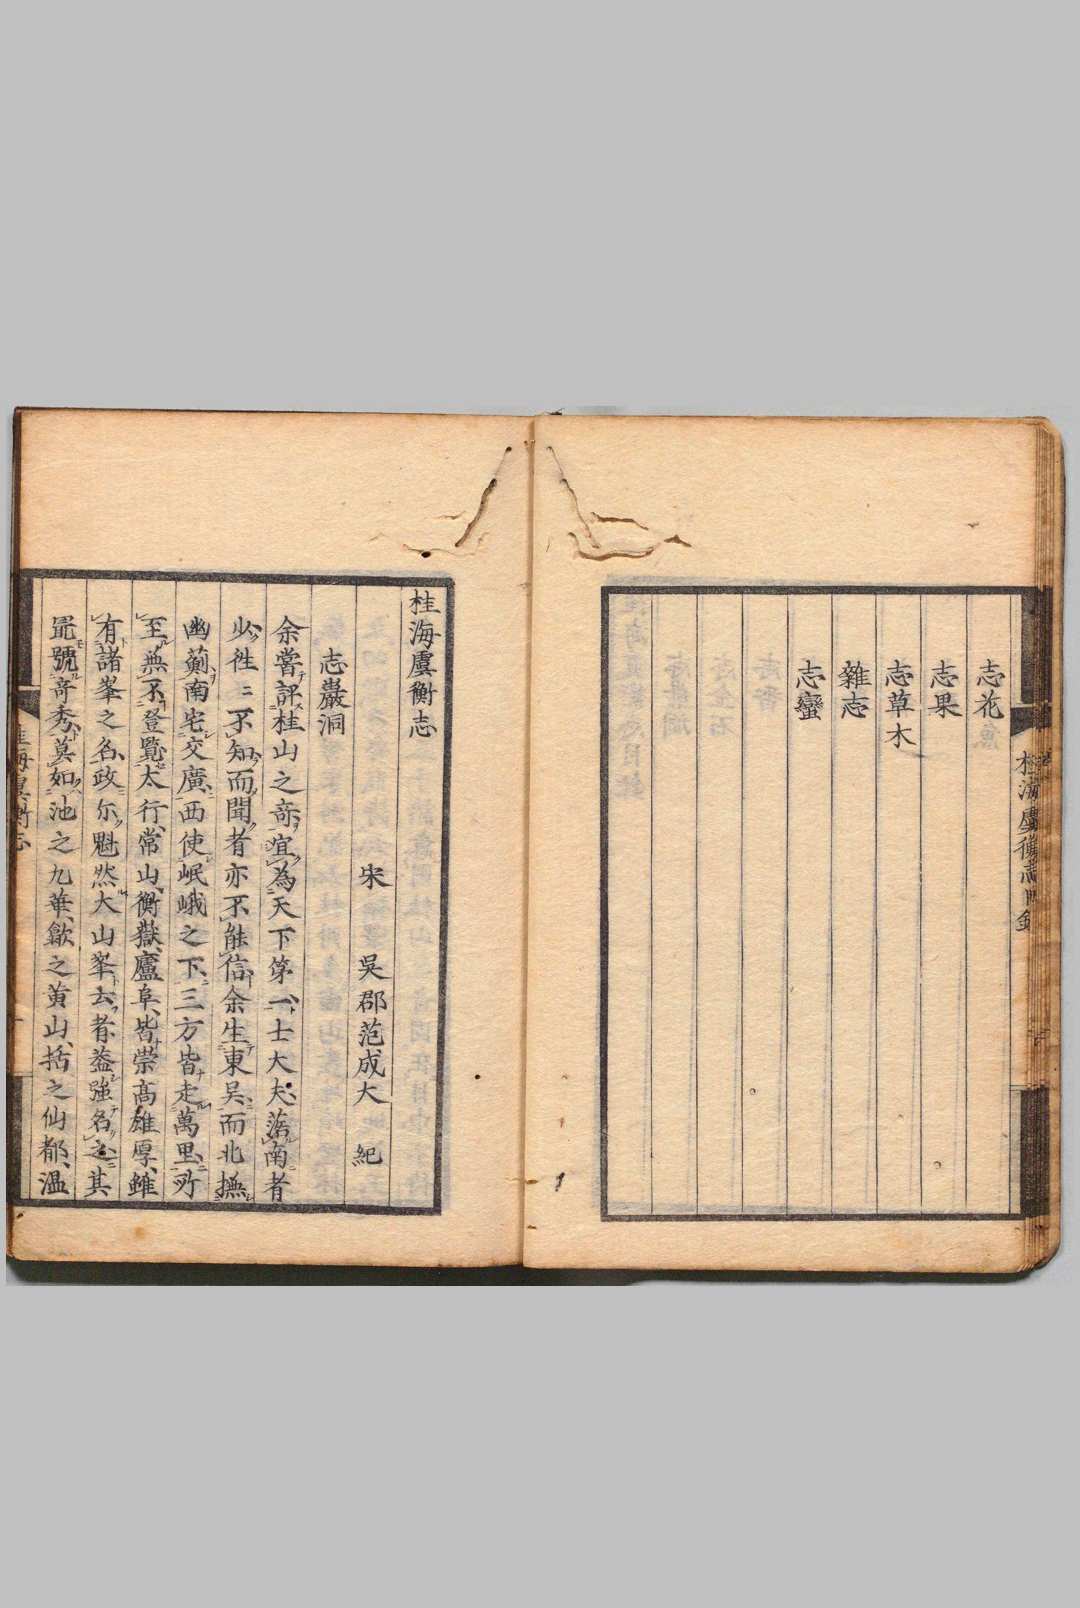 志花
志果
志草木
雜志
志蠻
桂海虞衡志目錄
桂海虞衡志
志巖洞
宋　吳郡范成大　紀
余嘗評桂山之竒宜為天下第一士大夫落南者
少徃〻不知而聞者亦不能信余生東吳而北撫
幽薊南宅交廣西使岷峨之下三方皆走萬里所
至無不登覽太行常山衡嶽廬阜皆崇髙雄厚雖
有諸峯之名政尓魁然大山峯云者葢強名之其
最號竒秀莫如池之九華歙之黄山括之仙都溫
桂海虞衡志